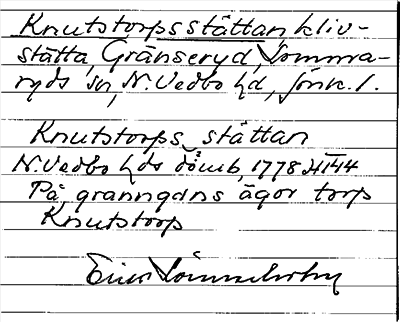 Knutstorpsstättan kliv-
stätta, Gränseryd, Somma-
ryds sn, N. Vedbo hd, Jönk. l.
Knutstorps stättan
N. Vedbo hds domb, 1778
På granngdns ägor torp
Knutstorp